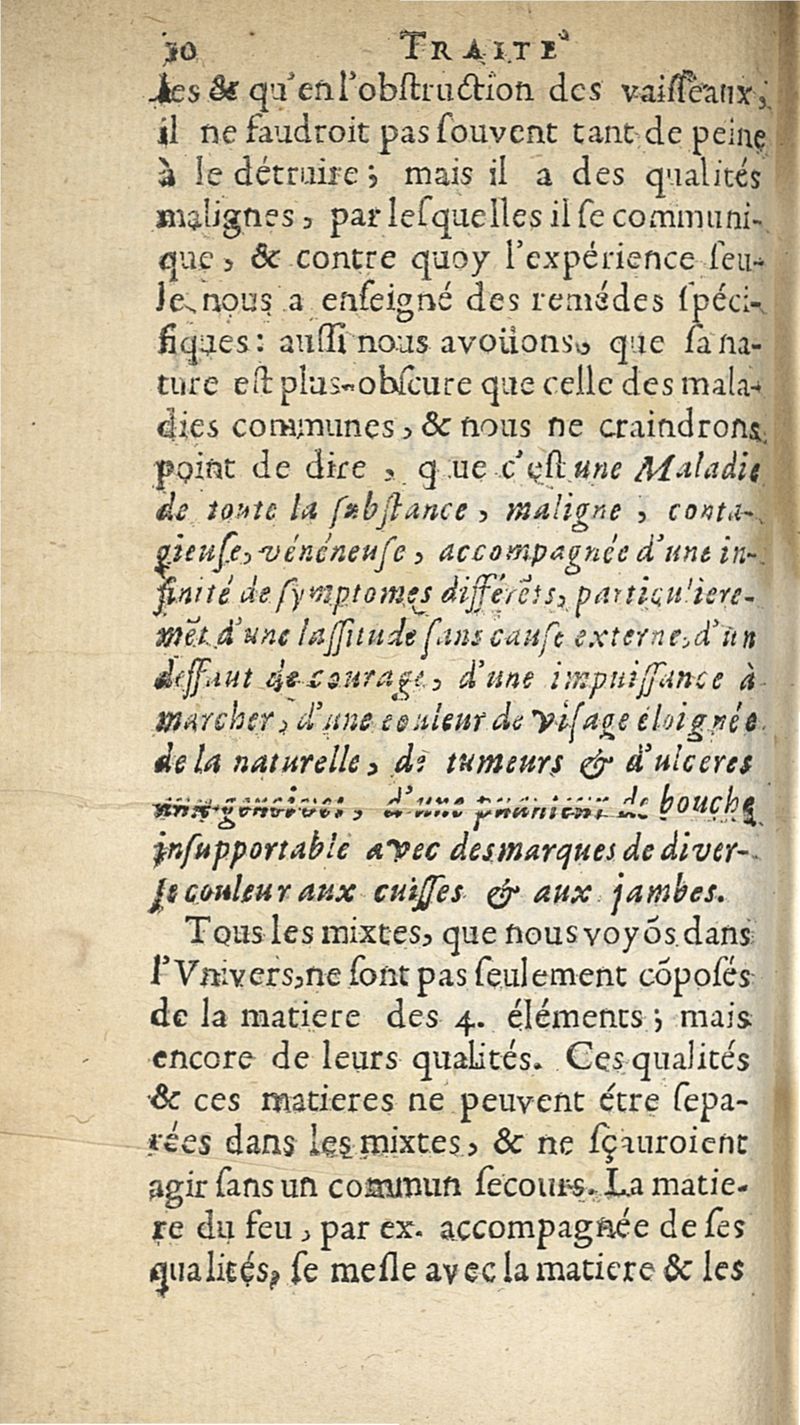 30 TRAITÉ
les & qu'en l'obſtruction des vaiſſeaux,
il ne faudroit pas ſouvent tant de peine
à le détruire ; mais il a des qualités
malignes, par leſquelles il ſe communi-
que, & contre quoy l'expérience ſeu-
le nous a enſeigné des remédes ſpéci-
fiques : auſſi nous avoüons, que ſa na-
ture eſt plus obſcure que celle des mala-
dies communes, & nous ne craindrons
point de dire, que c'eſt une Maladie
de toute la ſubſtance, maligne, conta-
gieuſe, vénéneuſe, accompagnée d'une in-
finité de ſymptomes différẽts, particuliere-
mẽt d'une laſſitude ſans cauſe externe, d'un
deffaut de courage, d'une impuiſſance à
marcher, d'une couleur de viſage éloignée
de la naturelle, de tumeurs & d'ulceres
aux gencives, d'une puanteur de bouche
inſupportable avec des marques de diver-
ſe couleur aux cuiſſes & aux jambes.
Tous les mixtes, que nous voyõs dans
l'Vnivers, ne ſont pas ſeulement cõpoſés
de la matiere des 4. éléments ; mais
encore de leurs qualités. Ces qualités
& ces matieres ne peuvent étre ſepa-
rées dans les mixtes, & ne ſçauroient
agir ſans un commun ſecours. La matie-
re du feu, par ex. accompagnée de ſes
qualités, ſe meſle avec la matiere & les